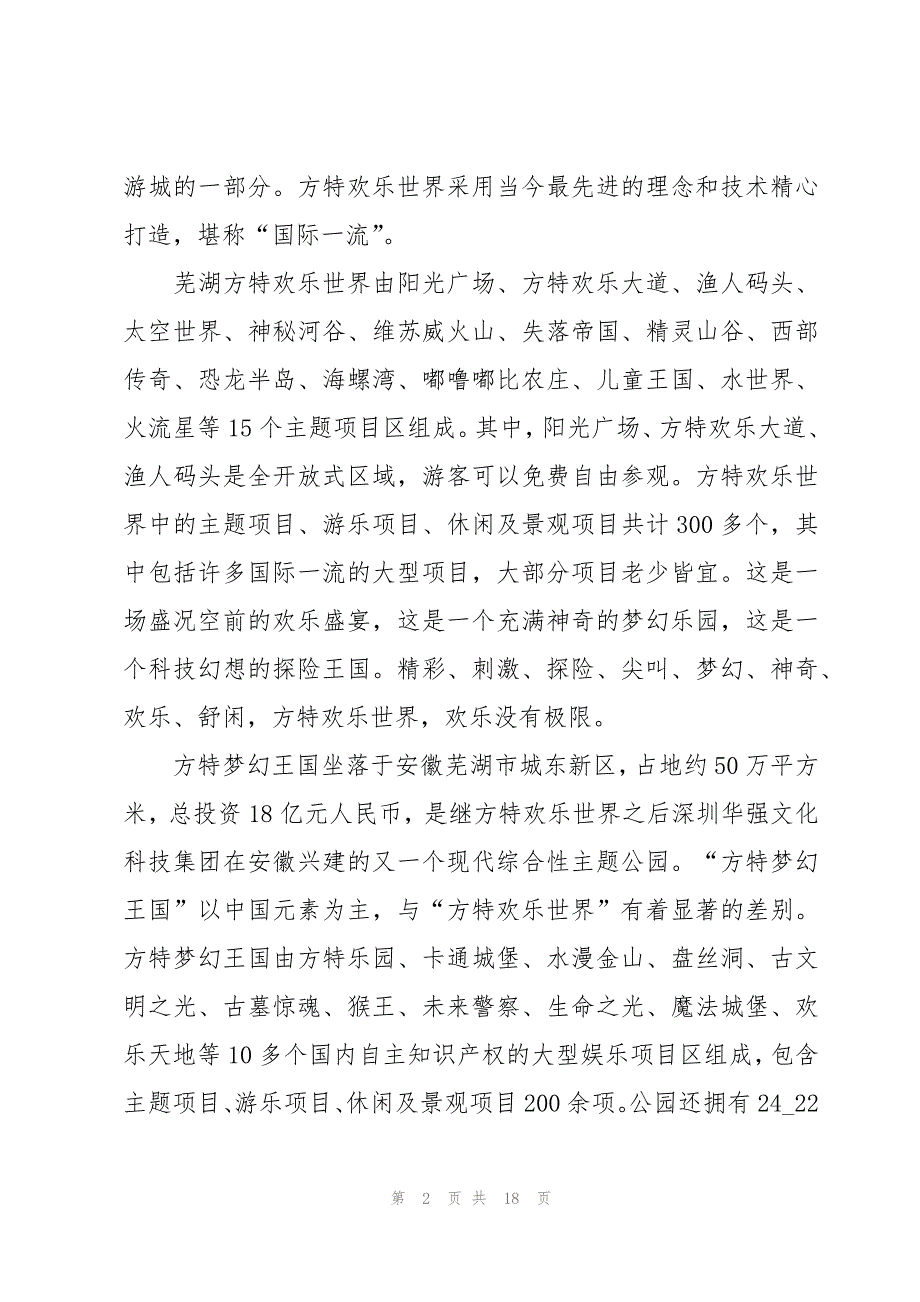 游城的一部分。方特欢乐世界采用当今最先进的理念和技术精心
打造，堪称“国际一流”。
芜湖方特欢乐世界由阳光广场、方特欢乐大道、渔人码头、
太空世界、神秘河谷、维苏威火山、失落帝国、精灵山谷、西部
传奇、恐龙半岛、海螺湾、嘟噜嘟比农庄、儿童王国、水世界、
火流星等 15 个主题项目区组成。其中，阳光广场、方特欢乐大道、
渔人码头是全开放式区域，游客可以免费自由参观。方特欢乐世
界中的主题项目、游乐项目、休闲及景观项目共计 300 多个，其
中包括许多国际一流的大型项目，大部分项目老少皆宜。这是一
场盛况空前的欢乐盛宴，这是一个充满神奇的梦幻乐园，这是一
个科技幻想的探险王国。精彩、刺激、探险、尖叫、梦幻、神奇、
欢乐、舒闲，方特欢乐世界，欢乐没有极限。
方特梦幻王国坐落于安徽芜湖市城东新区，占地约 50 万平方
米，总投资 18 亿元人民币，是继方特欢乐世界之后深圳华强文化
科技集团在安徽兴建的又一个现代综合性主题公园。“方特梦幻
王国”以中国元素为主，与“方特欢乐世界”有着显著的差别。
方特梦幻王国由方特乐园、卡通城堡、水漫金山、盘丝洞、古文
明之光、古墓惊魂、猴王、未来警察、生命之光、魔法城堡、欢
乐天地等 10 多个国内自主知识产权的大型娱乐项目区组成，包含
主题项目、游乐项目、休闲及景观项目 200 余项。公园还拥有 24_22
第 2 页 共 18 页